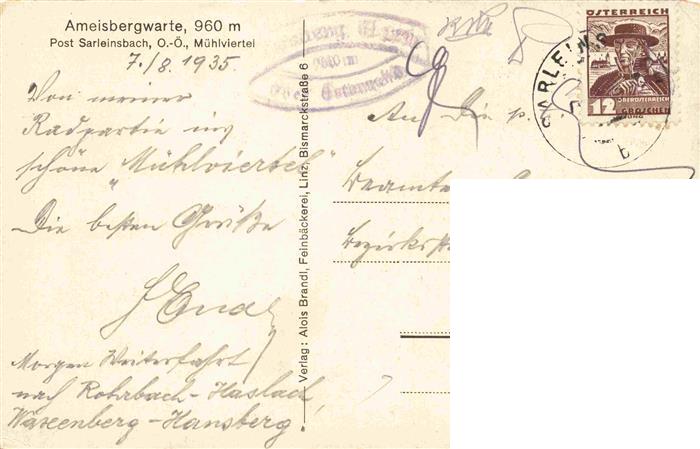 Ameisbergwarte, 960 m
Post Sarleinsbach, O.-Ö., Mühlviertel
7./8. 1935
Von meiner
Radpartie ins
schöne „Mühlviertel"
Die besten Grüße
Morgen Weiterfahrt
nach Rohrbach-Haslach,
Waxenberg-Hansberg
Verlag: Alois Brandl, Feinbäckerei, Linz, Bismarckstraße 6
960 m
An die p.
Beamten
Bezirks
ÖSTERREICH
12
OBERÖSTERREICH
GROSCHEN
SARLEINS
b